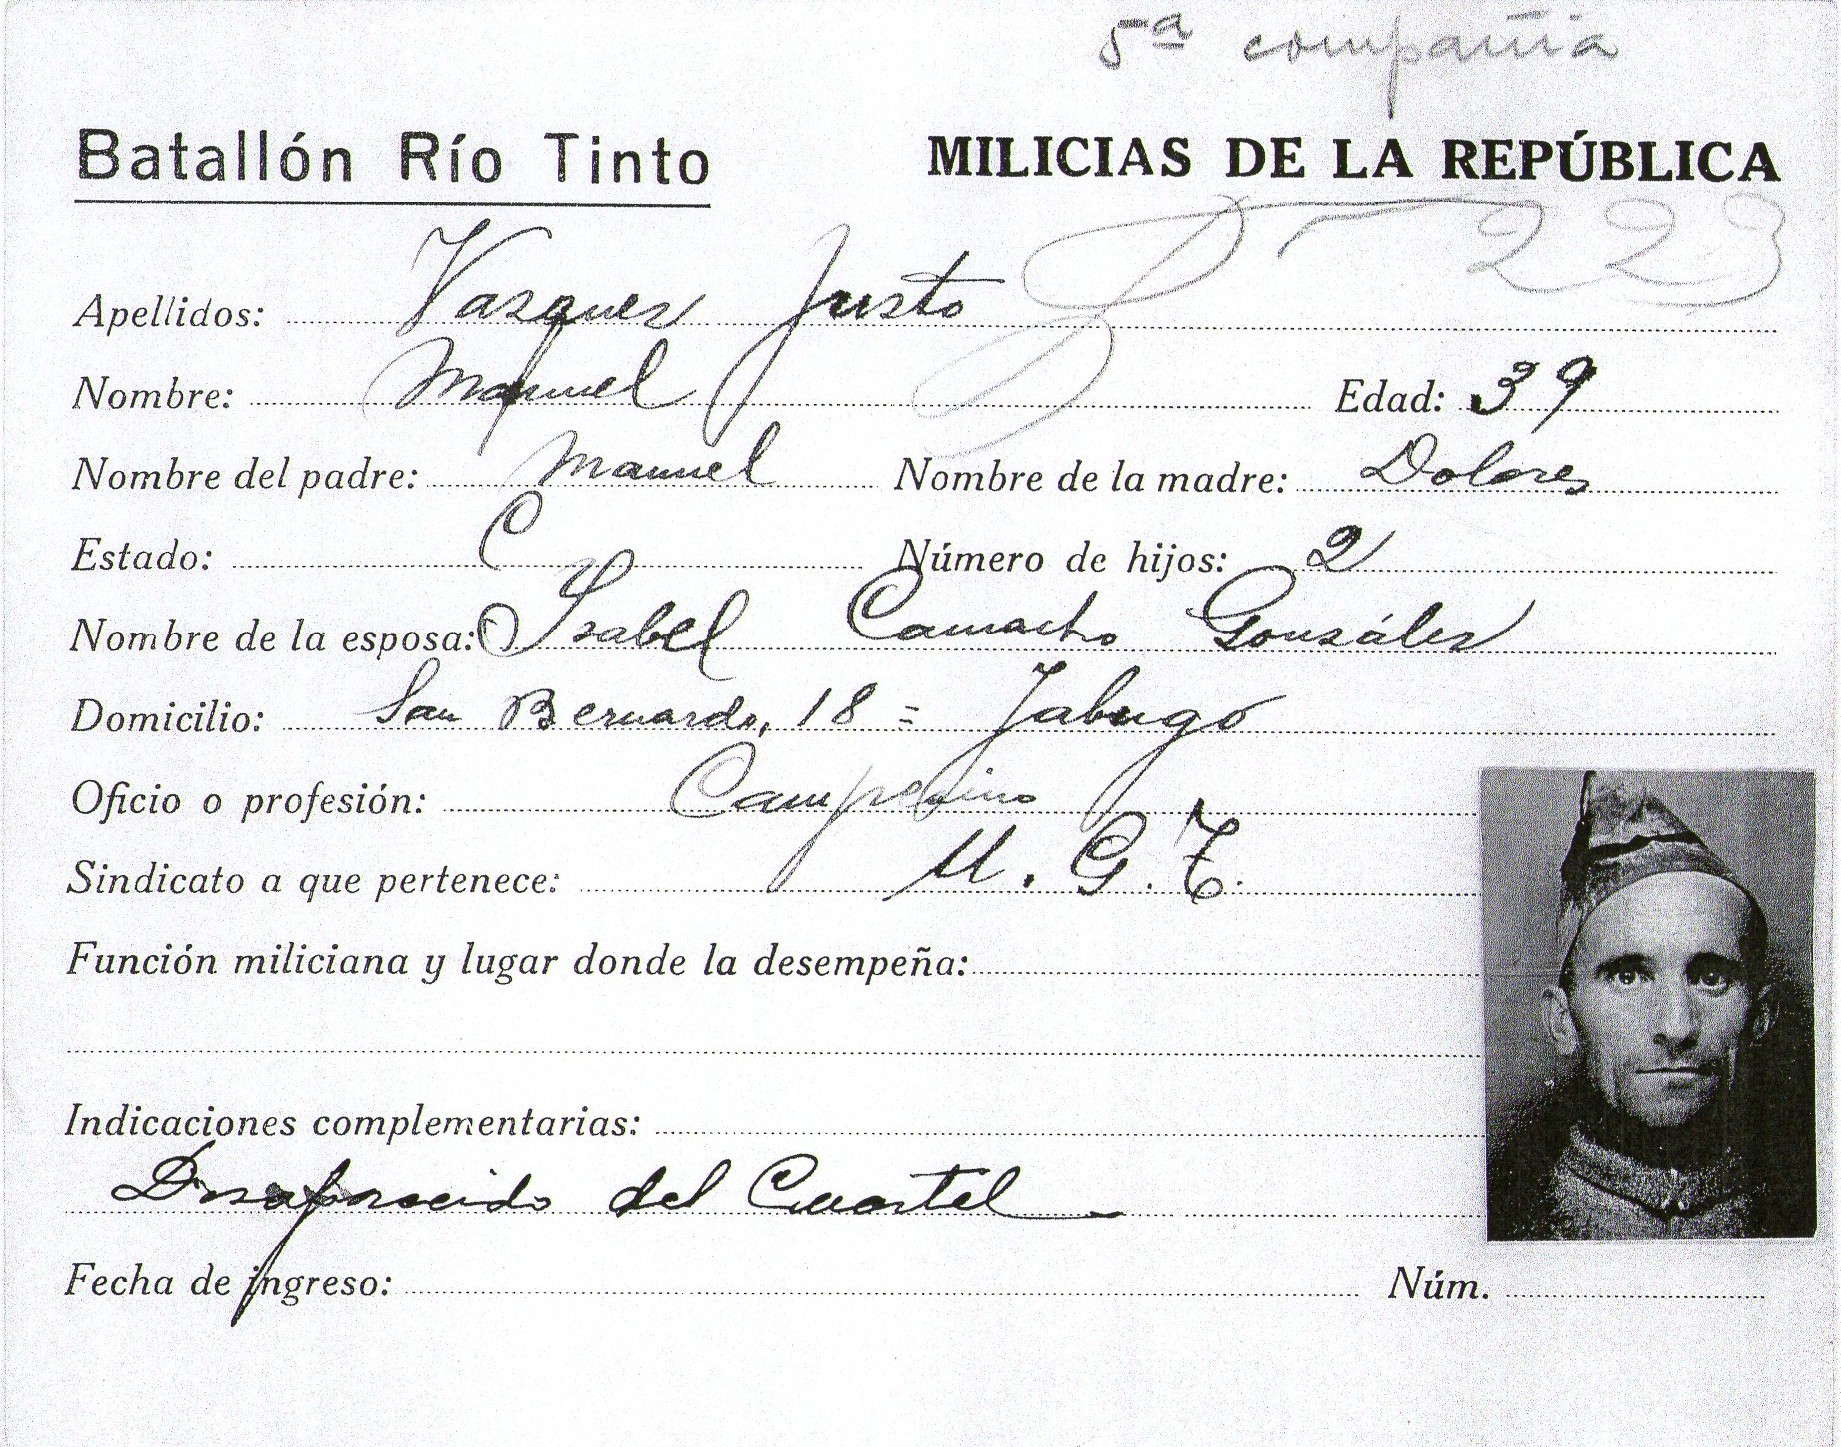 5ª compañia
Batallón Río Tinto MILICIAS DE LA REPÚBLICA
223
Apellidos: Vasquez Justo
Nombre: Manuel Edad: 39
Nombre del padre: Manuel Nombre de la madre: Dolores
Estado: C Número de hijos: 2
Nombre de la esposa: Ysabel Camacho Gonzáles
Domicilio: San Bernardo, 18 = Jabugo
Oficio o profesión: Campesino
Sindicato a que pertenece: U. G. T.
Función miliciana y lugar donde la desempeña:
Indicaciones complementarias:
Desaparecido del Cuartel
Fecha de ingreso: Núm.